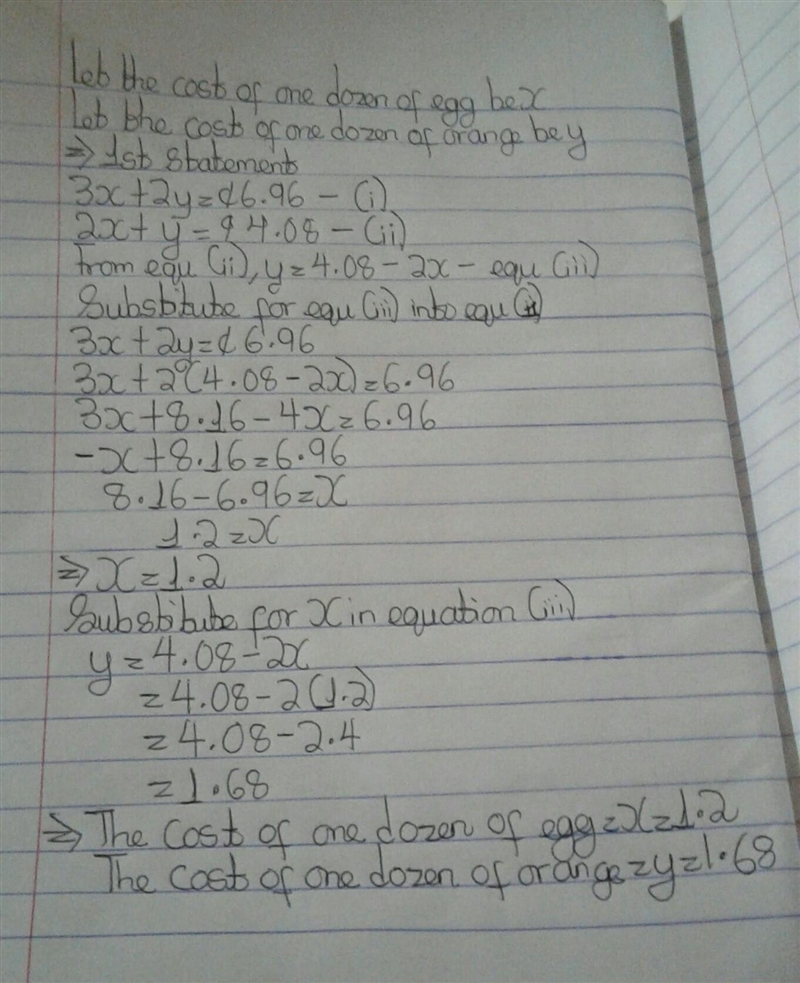 Let the cost of one dozen of egg be x
Let the cost of one dozen of orange be y
⇒ 1st statement
3x + 2y = ¢6.96 - (i)
2x + y = ¢4.08 - (ii)
from equ (ii), y = 4.08 - 2x - equ (iii)
Substitute for equ (iii) into equ
3x + 2y = ¢6.96
3x + 2(4.08 - 2x) = 6.96
3x + 8.16 - 4x = 6.96
-x + 8.16 = 6.96
8.16 - 6.96 = x
1.2 = x
⇒ x = 1.2
Substitute for x in equation (iii)
y = 4.08 - 2x
= 4.08 - 2(1.2)
= 4.08 - 2.4
= 1.68
⇒ The cost of one dozen of egg = x = 1.2
The cost of one dozen of orange = y = 1.68